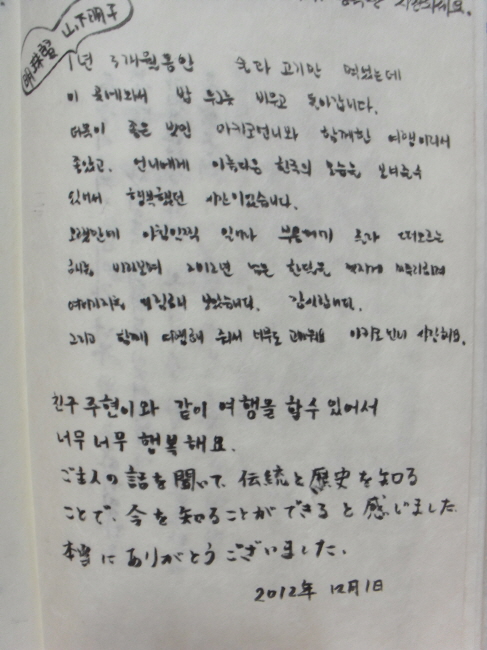 山下明子
1년 3개월동안 술과 고기만 먹었는데
이 곳에와서 밥 비우고 돌아갑니다.
더욱이 좋은 벗인 아키코언니와 함께한 여행이라서
좋았고, 언니에게 아름다운 한국의 모습을 보여줄수
있어서 행복했던 시간이었습니다.
오랜만에 아침일찍 일어나 떠오르는
해를 바라보며 2012년 남은 한달을 마무리하며
감사합니다.
그리고 함께 여행해 줘서 너무도 고마워요 아키코언니 사랑해요.
친구 주현이와 같이 여행을 할수 있어서
너무 너무 행복해요.
ご主人の話を聞いて、伝統と歴史を知る
ことで、今を知ることができると感じました.
本当にありがとうございました.
2012年 12月1日